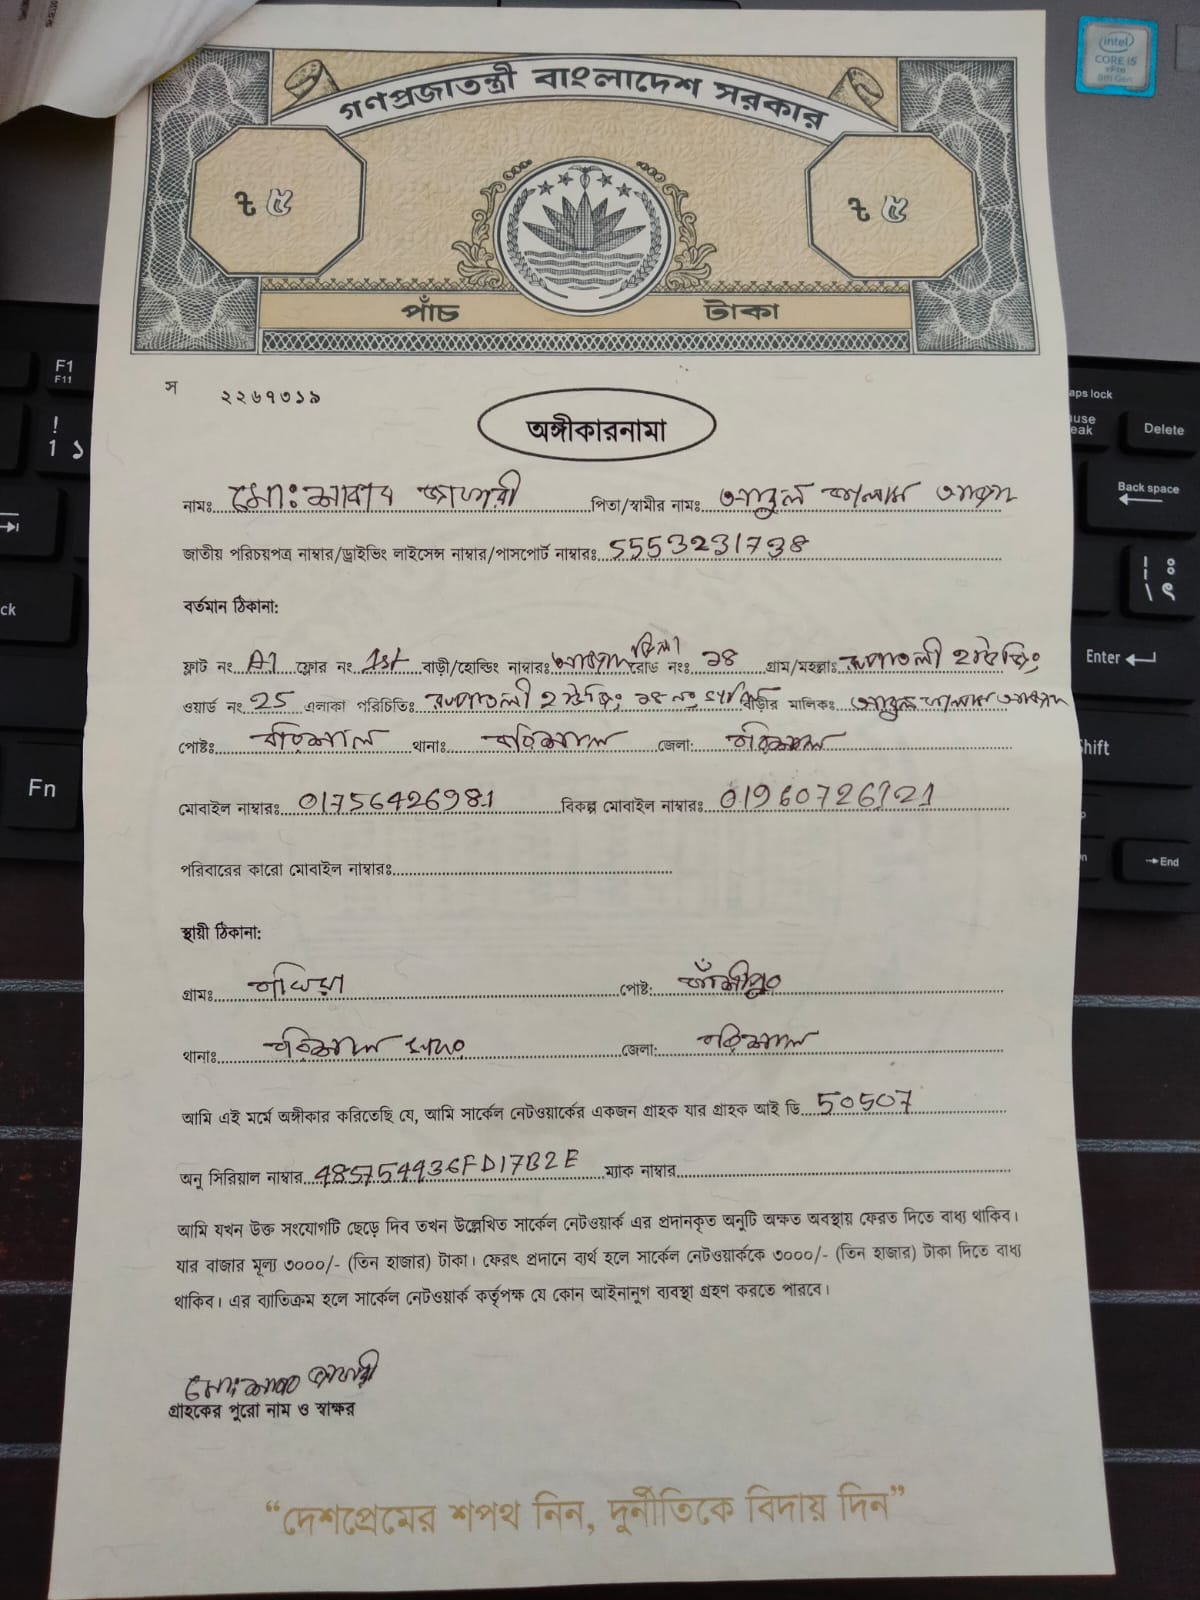 গণপ্রজাতন্ত্রী বাংলাদেশ সরকার
৳ ৫ ৳ ৫
পাঁচ টাকা
স ২২৬৭৩১৯
অঙ্গীকারনামা
নামঃ মোঃ পিতা/স্বামীর নামঃ আবুল কালাম
জাতীয় পরিচয়পত্র নাম্বার/ড্রাইভিং লাইসেন্স নাম্বার/পাসপোর্ট নাম্বারঃ 5553231738
বর্তমান ঠিকানা:
ফ্লাট নং A1 ফ্লোর নং 1st বাড়ী/হোল্ডিং নাম্বারঃ ভিলা রোড নংঃ ১৪ গ্রাম/মহল্লাঃ রুপাতলী হাউজিং
ওয়ার্ড নং 25 এলাকা পরিচিতিঃ রুপাতলী হাউজিং ১৪ নং বাড়ীর মালিকঃ আবুল কালাম
পোষ্টঃ বরিশাল থানাঃ বরিশাল জেলা: বরিশাল
মোবাইল নাম্বারঃ 01756426981 বিকল্প মোবাইল নাম্বারঃ
পরিবারের কারো মোবাইল নাম্বারঃ
স্থায়ী ঠিকানা:
গ্রামঃ পোষ্ট: কাশীপুর
থানাঃ বরিশাল সদর জেলা: বরিশাল
আমি এই মর্মে অঙ্গীকার করিতেছি যে, আমি সার্কেল নেটওয়ার্কের একজন গ্রাহক যার গ্রাহক আই ডি 50507
অনু সিরিয়াল নাম্বার 485754436FD17B2E ম্যাক নাম্বার
আমি যখন উক্ত সংযোগটি ছেড়ে দিব তখন উল্লেখিত সার্কেল নেটওয়ার্ক এর প্রদানকৃত অনুটি অক্ষত অবস্থায় ফেরত দিতে বাধ্য থাকিব।
যার বাজার মূল্য ৩০০০/- (তিন হাজার) টাকা। ফেরৎ প্রদানে ব্যর্থ হলে সার্কেল নেটওয়ার্ককে ৩০০০/- (তিন হাজার) টাকা দিতে বাধ্য
থাকিব। এর ব্যতিক্রম হলে সার্কেল নেটওয়ার্ক কর্তৃপক্ষ যে কোন আইনানুগ ব্যবস্থা গ্রহণ করতে পারবে।
মোঃ
গ্রাহকের পুরো নাম ও স্বাক্ষর
“দেশপ্রেমের শপথ নিন, দুর্নীতিকে বিদায় দিন”
intel
CORE i5
vPro
8th Gen
F1
F11
Fn
Delete
Back space
Enter
End